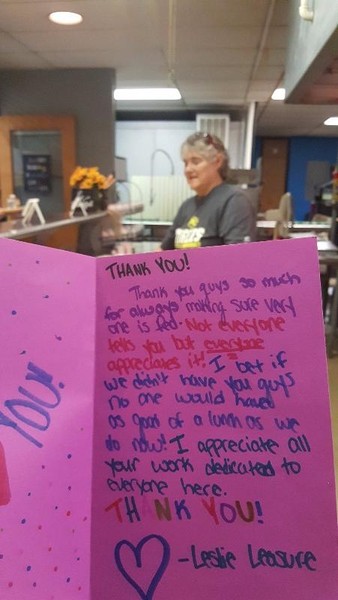 THANK YOU!
Thank you guys so much
for always making sure very
one is fed. Not everyone
tells you but everyone
appreciates it! I bet if
we didn't have you guys
no one would have
as good of a lunch as we
do now! I appreciate all
your work dedicated to
everyone here.
THANK YOU!
-Leslie Leasure
YOU!